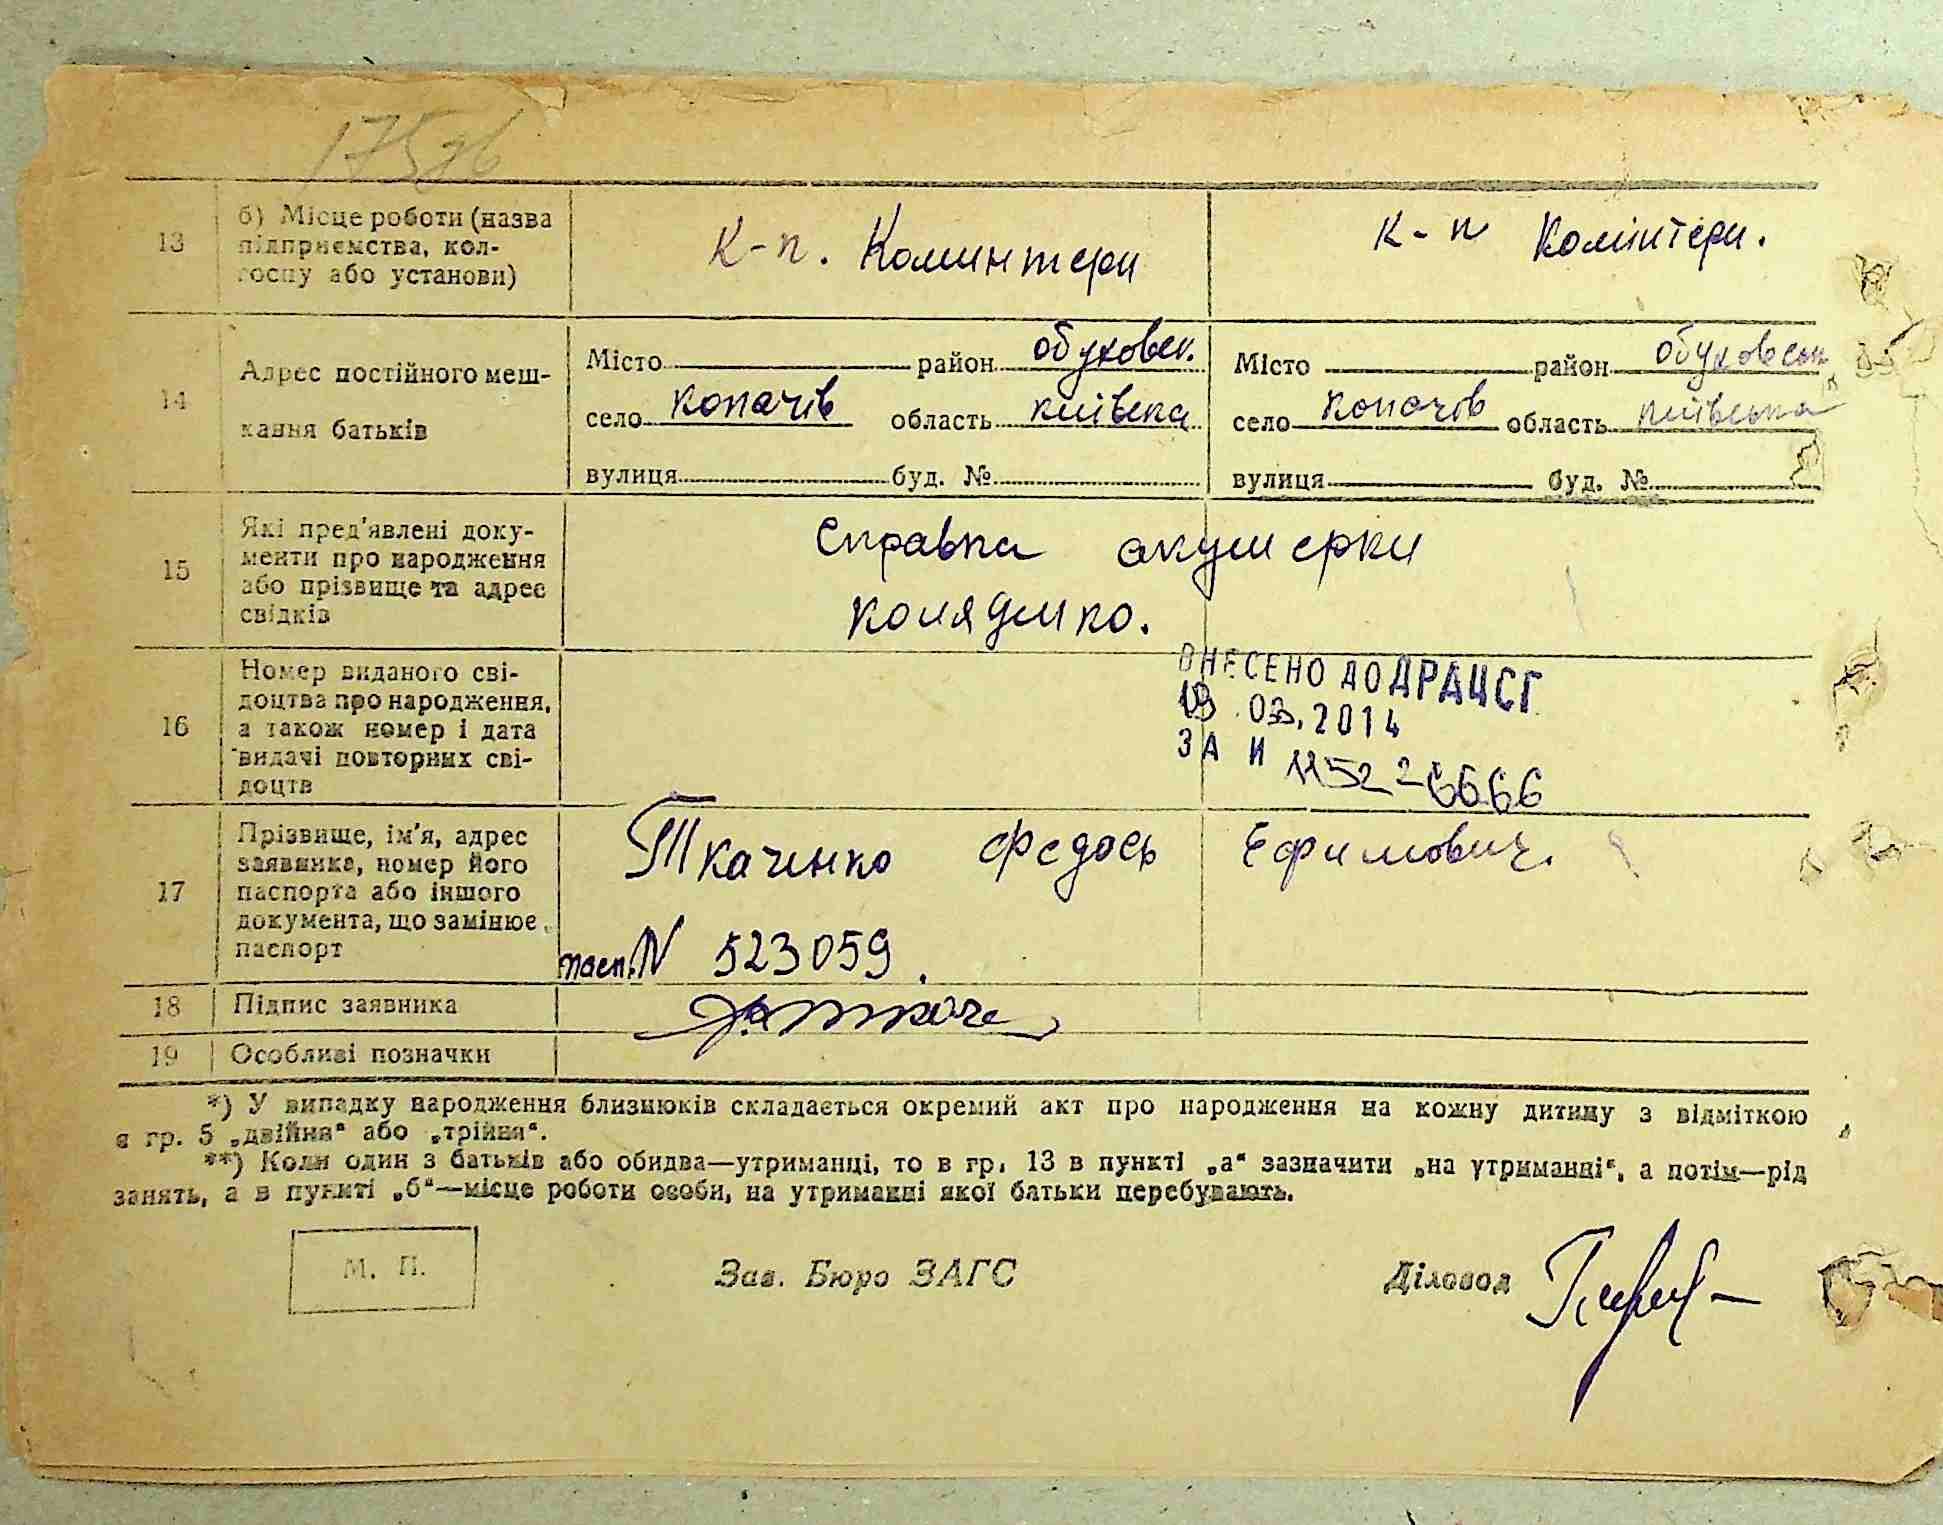 175зв
13 б) Місце роботи (назва підприємства, колгоспу або установи) к-п. Коминтерн к-п Комінтерн.
14 Адрес постійного мешкання батьків
Місто район обуховск. Місто район обуховськ
село Копачів область київска село Копачів область київська
вулиця буд. № вулиця буд. №
15 Які пред'явлені документи про народження або прізвище та адрес свідків
Справка акушерки
Колядинко.
16 Номер виданого свідоцтва про народження, а також номер і дата видачі повторних свідоцтв
ВНЕСЕНО ДО ДРАЦСГ
19.03.2014
ЗА И 1152-26666
17 Прізвище, ім'я, адрес заявника, номер його паспорта або іншого документа, що замінює паспорт
Ткаченко Федось Ефимович.
пасп. N 523059.
18 Підпис заявника
19 Особливі позначки
*) У випадку народження близнюків складається окремий акт про народження на кожну дитину з відміткою
в гр. 5 „двійня“ або „трійня“.
**) Коли один з батьків або обидва—утриманці, то в гр. 13 в пункті „а“ зазначити „на утриманні“, а потім—рід
занять, а в пункті „б“—місце роботи особи, на утриманні якої батьки перебувають.
М. П. Зав. Бюро ЗАГС Діловод